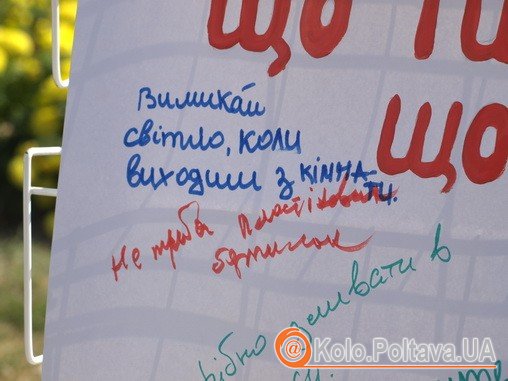 що
що
Вимикай
світло, коли
виходиш з кімна-
ти.
Не треба пластікових
бутилок
зливати в
@Kolo.Poltava.UA